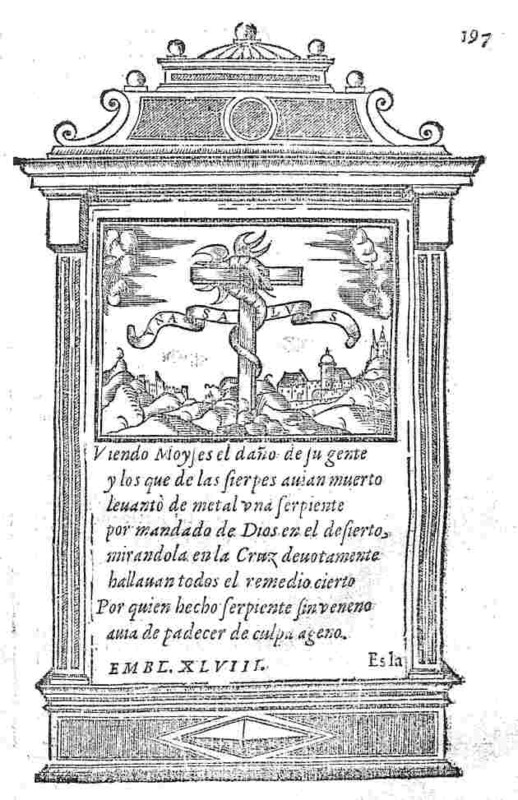 197
VNA SALVS
Viendo Moyſes el daño de ſu gente
y los que de las ſierpes auian muerto
leuantò de metal vna ſerpiente
por mandado de Dios en el deſierto,
mirandola en la Cruz deuotamente
hallauan todos el remedio cierto
Por quien hecho ſerpiente ſin veneno
auia de padecer de culpa ageno.
EMBL. XLVIII.
Es la